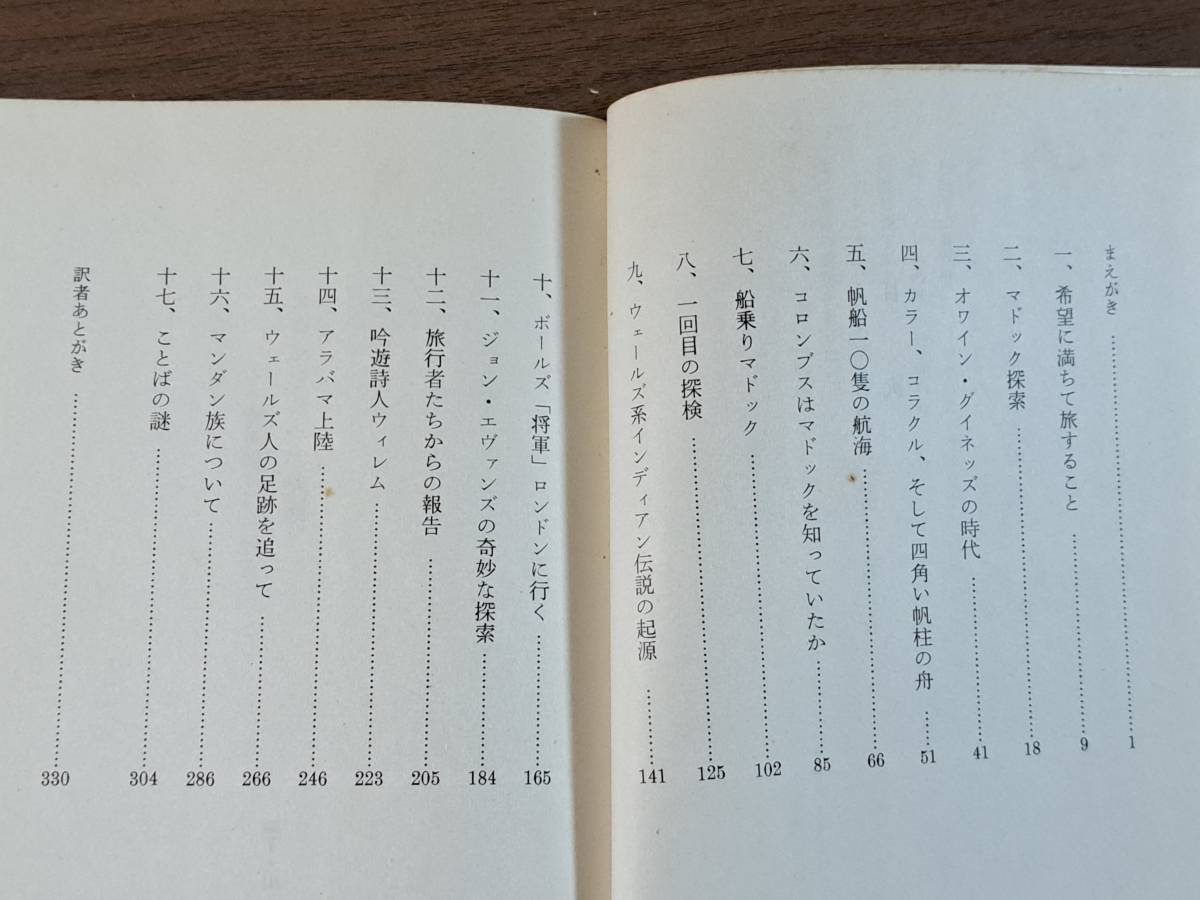 まえがき……………1
一、希望に満ちて旅すること……………9
二、マドック探索……………18
三、オワイン・グイネッズの時代……………41
四、カラー、コラクル、そして四角い帆柱の舟……51
五、帆船一〇隻の航海……………66
六、コロンブスはマドックを知っていたか……………85
七、船乗りマドック……………102
八、一回目の探検……………125
九、ウェールズ系インディアン伝説の起源……………141
十、ボールズ「将軍」ロンドンに行く……………165
十一、ジョン・エヴァンズの奇妙な探索……………184
十二、旅行者たちからの報告……………205
十三、吟遊詩人ウィレム……………223
十四、アラバマ上陸……………246
十五、ウェールズ人の足跡を追って……………266
十六、マンダン族について……………286
十七、ことばの謎……………304
訳者あとがき……………330